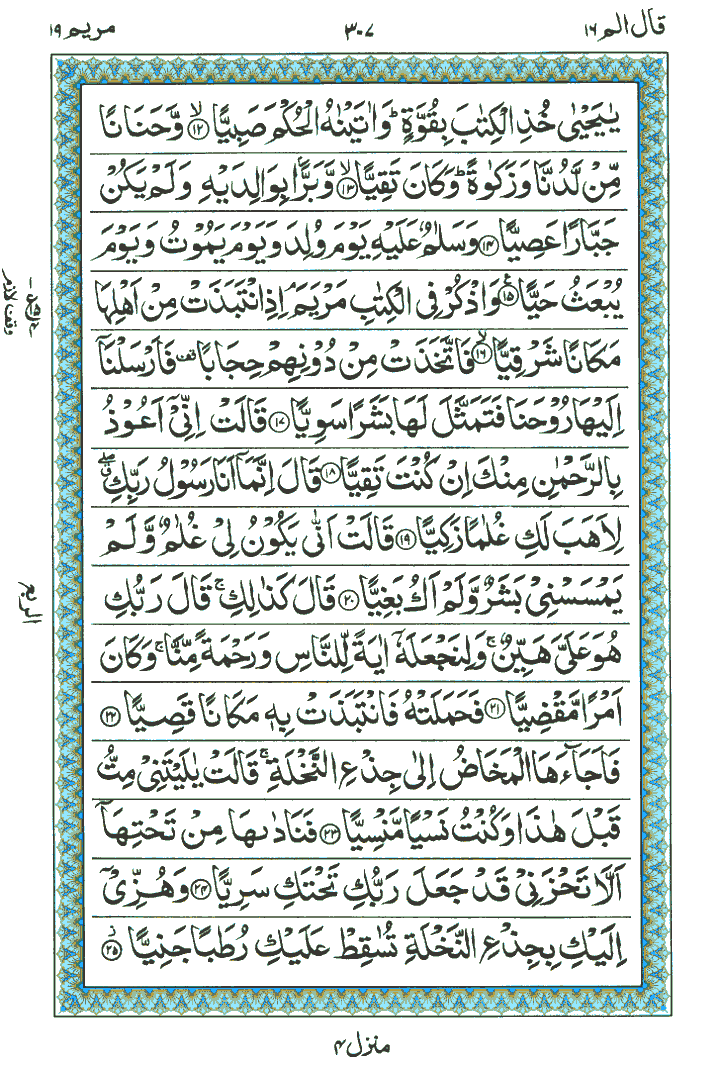 قال الم ١٦
٣٠٧
مريم ١٩
يٰيَحْيٰى خُذِ الْكِتٰبَ بِقُوَّةٍ ؕ وَاٰتَيْنٰهُ الْحُكْمَ صَبِيًّا ۙ﴿۱۲﴾ وَّحَنَانًا
مِّنْ لَّدُنَّا وَزَكٰوةً ؕ وَكَانَ تَقِيًّا ۙ﴿۱۳﴾ وَّبَرًّۢا بِوَالِدَيْهِ وَلَمْ يَكُنْ
جَبَّارًا عَصِيًّا ﴿۱۴﴾ وَسَلٰمٌ عَلَيْهِ يَوْمَ وُلِدَ وَيَوْمَ يَمُوْتُ وَيَوْمَ
يُبْعَثُ حَيًّا ﴿۱۵﴾ع وَاذْكُرْ فِى الْكِتٰبِ مَرْيَمَ ۘ اِذِ انْتَبَذَتْ مِنْ اَهْلِهَا
مَكَانًا شَرْقِيًّا ۙ﴿۱۶﴾ فَاتَّخَذَتْ مِنْ دُوْنِهِمْ حِجَابًا قف فَاَرْسَلْنَاۤ
اِلَيْهَا رُوْحَنَا فَتَمَثَّلَ لَهَا بَشَرًا سَوِيًّا ﴿۱۷﴾ قَالَتْ اِنِّىْۤ اَعُوْذُ
بِالرَّحْمٰنِ مِنْكَ اِنْ كُنْتَ تَقِيًّا ﴿۱۸﴾ قَالَ اِنَّمَاۤ اَنَا رَسُوْلُ رَبِّكِ ۖ ق
لِاَهَبَ لَكِ غُلٰمًا زَكِيًّا ﴿۱۹﴾ قَالَتْ اَنّٰى يَكُوْنُ لِىْ غُلٰمٌ وَّلَمْ
يَمْسَسْنِىْ بَشَرٌ وَّلَمْ اَكُ بَغِيًّا ﴿۲۰﴾ قَالَ كَذٰلِكِ ۚ قَالَ رَبُّكِ
هُوَ عَلَىَّ هَيِّنٌ ۚ وَلِنَجْعَلَهٗۤ اٰيَةً لِّلنَّاسِ وَرَحْمَةً مِّنَّا ۚ وَكَانَ
اَمْرًا مَّقْضِيًّا ﴿۲۱﴾ فَحَمَلَتْهُ فَانْتَبَذَتْ بِهٖ مَكَانًا قَصِيًّا ﴿۲۲﴾
فَاَجَآءَهَا الْمَخَاضُ اِلٰى جِذْعِ النَّخْلَةِ ۚ قَالَتْ يٰلَيْتَنِىْ مِتُّ
قَبْلَ هٰذَا وَكُنْتُ نَسْيًا مَّنْسِيًّا ﴿۲۳﴾ فَنَادٰىهَا مِنْ تَحْتِهَاۤ
اَلَّا تَحْزَنِىْ قَدْ جَعَلَ رَبُّكِ تَحْتَكِ سَرِيًّا ﴿۲۴﴾ وَهُزِّىْۤ
اِلَيْكِ بِجِذْعِ النَّخْلَةِ تُسٰقِطْ عَلَيْكِ رُطَبًا جَنِيًّا ؗ﴿۲۵﴾
وقف لازم
الربع
منزل ۴